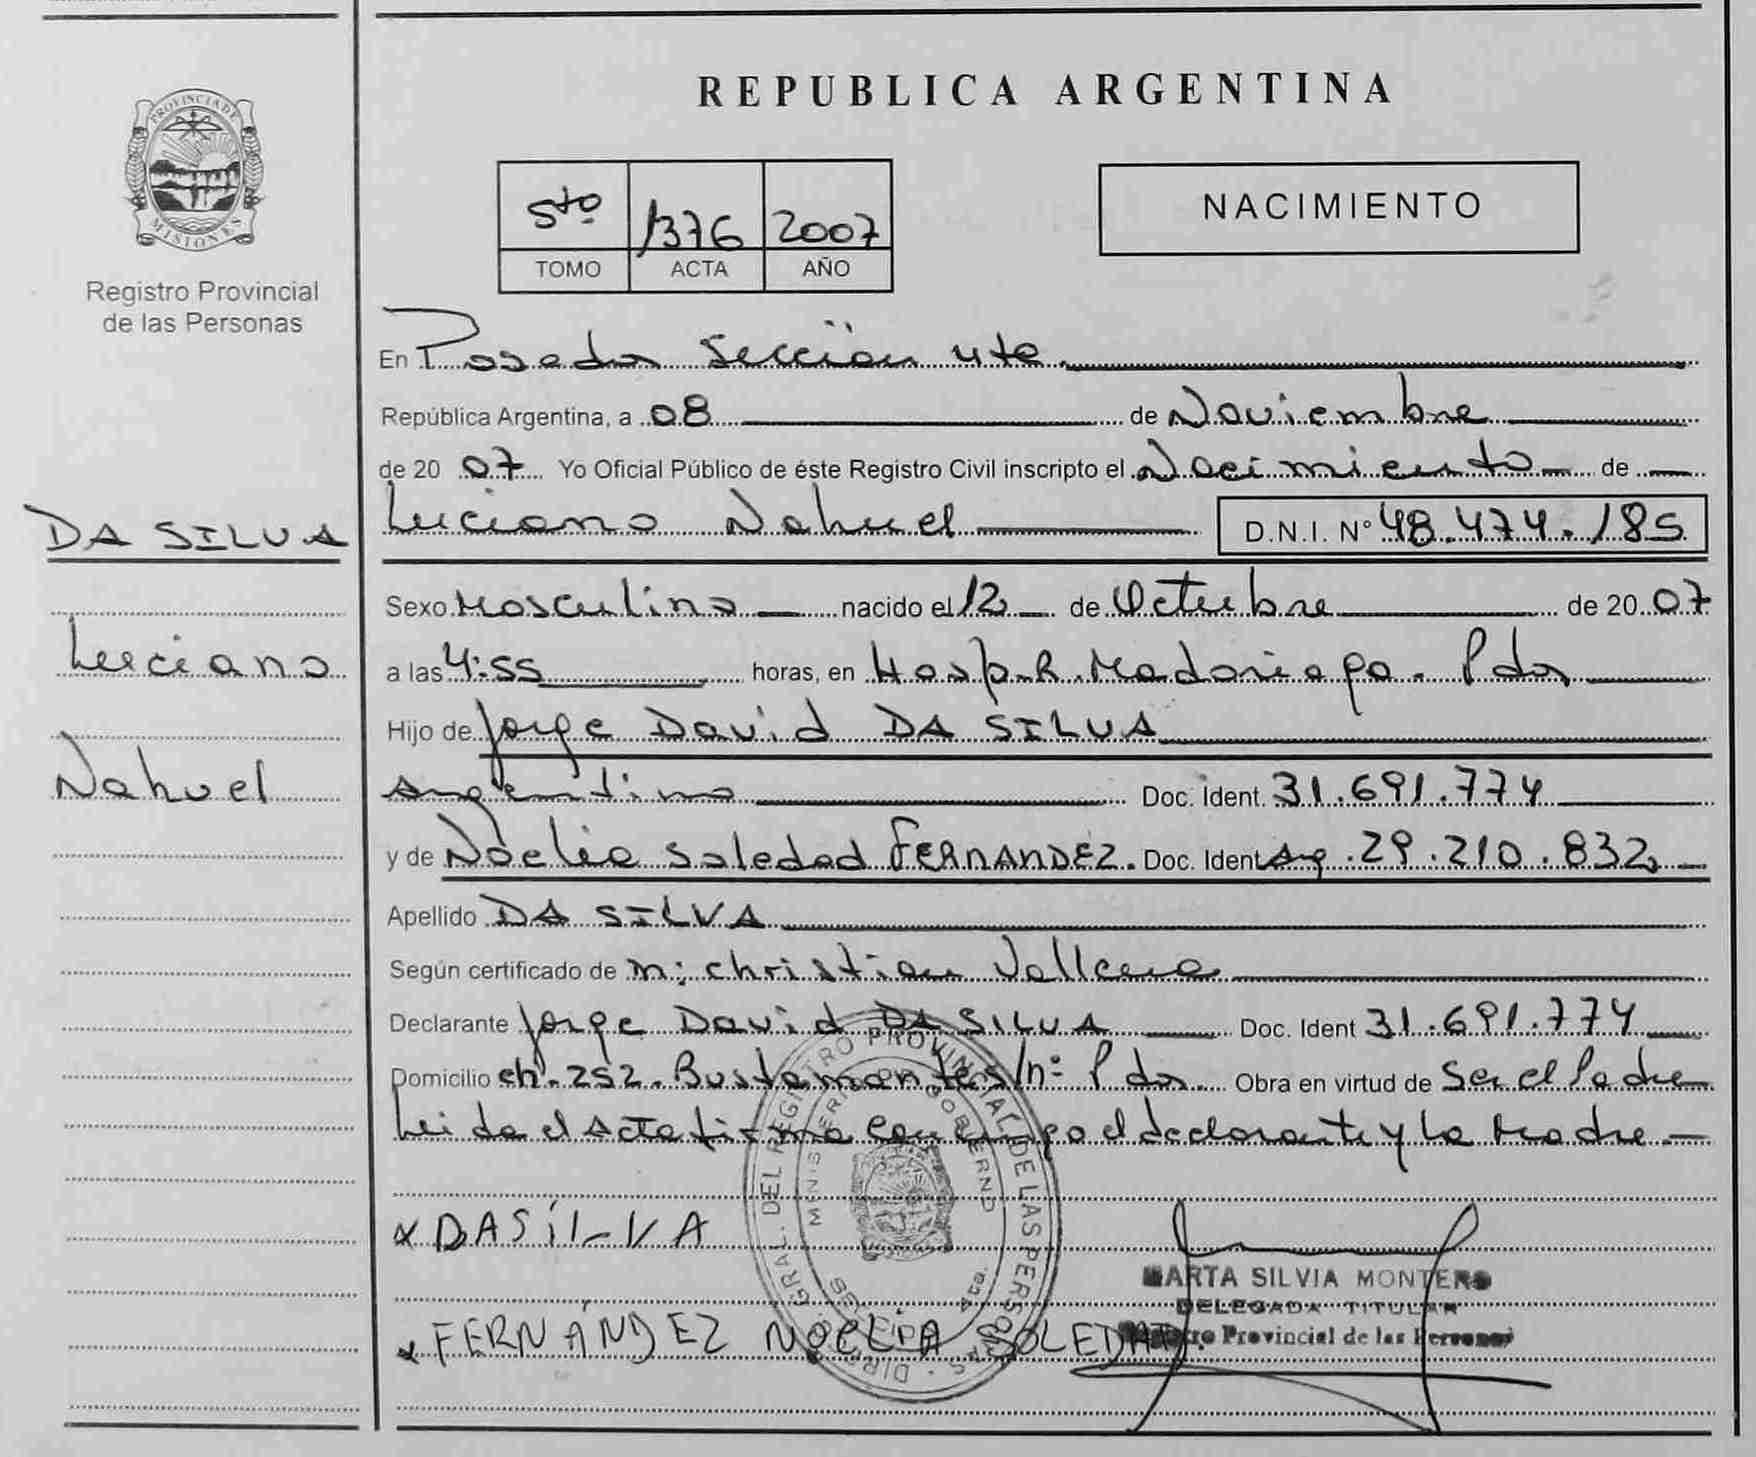 PROVINCIA DE
MISIONES
Registro Provincial
de las Personas
DA SILVA
Luciano
Nahuel
REPUBLICA ARGENTINA
5to 1376 2007
TOMO ACTA AÑO
NACIMIENTO
En Posadas Sección 4ta
República Argentina, a 08 de Noviembre
de 2007 Yo Oficial Público de éste Registro Civil inscripto el Nacimiento de
Luciano Nahuel D.N.I. Nº 48.474.185
Sexo Masculino nacido el 12 de Octubre de 2007
a las 4:55 horas, en Hosp. R. Madariaga. Pdas
Hijo de Jorge David DA SILVA
Argentino Doc. Ident. 31.691.774
y de Noelia Soledad FERNANDEZ. Doc. Ident Arg. 29.210.832
Apellido DA SILVA
Según certificado de M: Christian
Declarante Jorge David DA SILVA Doc. Ident 31.691.774
Domicilio ch. 252. Bustamante s/nº Pdas. Obra en virtud de Ser el Padre
Leida el Acta firma conmigo el declarante y la Madre
x DA SÍLVA
x FERNÁNDEZ NOELIA SOLEDAD.
MARTA SILVIA MONTERO
DELEGADA TITULAR
Registro Provincial de las Personas
DIREC. GRAL. DEL REGISTRO PROVINCIAL DE LAS PERSONAS
MINISTERIO DE GOBIERNO